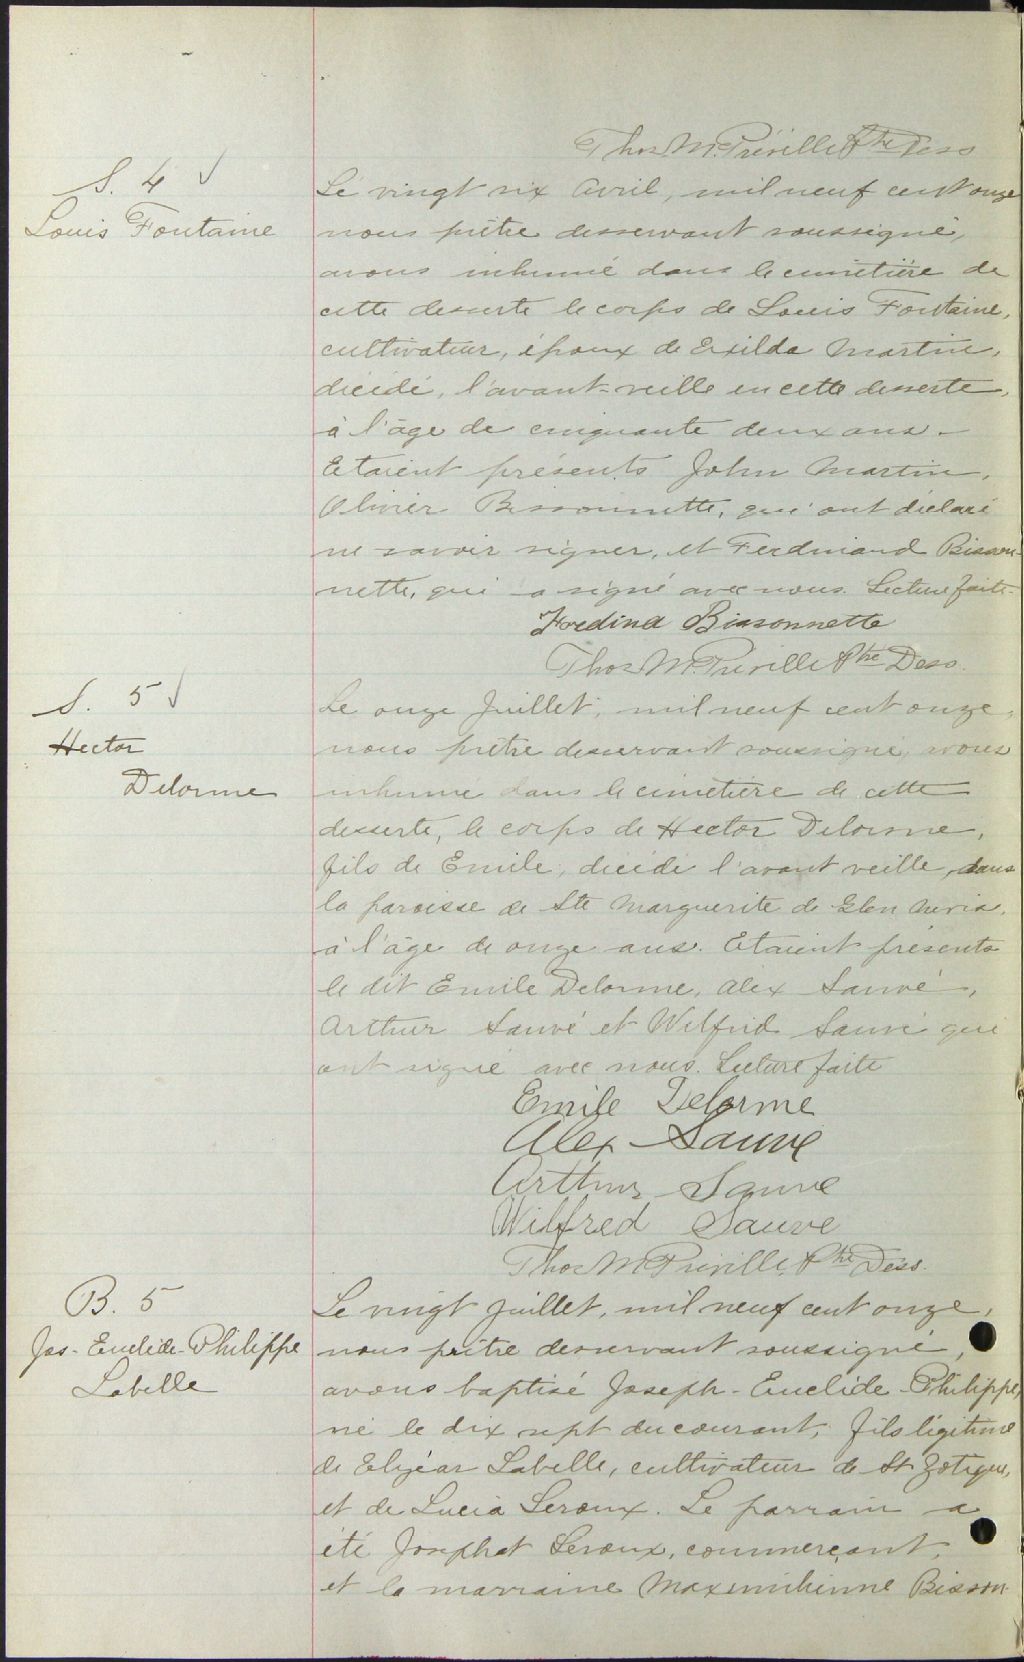 Thos M. Préville Ptre Dess
S. 4
Louis Fontaine
Le vingt six Avril, mil neuf cent onze
nous prêtre desservant soussigné,
avons inhumé dans le cimetière de
cette desserte le corps de Louis Fontaine,
cultivateur, époux de Exilda Martin,
décédé, l'avant-veille en cette desserte,
à l'âge de cinquante deux ans.
Etaient présents John Martin,
Olivier Bissonnette, qui ont déclaré
ne savoir signer, et Ferdinand Bisson-
nette, qui a signé avec nous. Lecture faite.
Ferdina Bissonnette
Thos M. Préville Ptre Dess.
S. 5
Hector
Delorme
Le onze Juillet, mil neuf cent onze,
nous prêtre desservant soussigné, avons
inhumé dans le cimetière de cette
desserte, le corps de Hector Delorme,
fils de Emile, décédé l'avant veille, dans
la paroisse de Ste Marguerite de Glen Nevis,
à l'âge de onze ans. Etaient présents
le dit Emile Delorme, Alex Sauvé,
Arthur Sauvé et Wilfrid Sauvé qui
ont signé avec nous. Lecture faite
Emile Delorme
Alex Sauve
Arthur Sauve
Wilfred Sauve
Thos M Préville, Ptre Dess.
B. 5
Jos-Euclide-Philippe
Labelle
Le vingt Juillet, mil neuf cent onze,
nous prêtre desservant soussigné,
avons baptisé Joseph-Euclide-Philippe,
né le dix sept du courant, fils légitime
de Elzéar Labelle, cultivateur de St Zotique,
et de Lucia Leroux. Le parrain a
été Josephat Leroux, commerçant,
et la marraine Maximilienne Bisson-